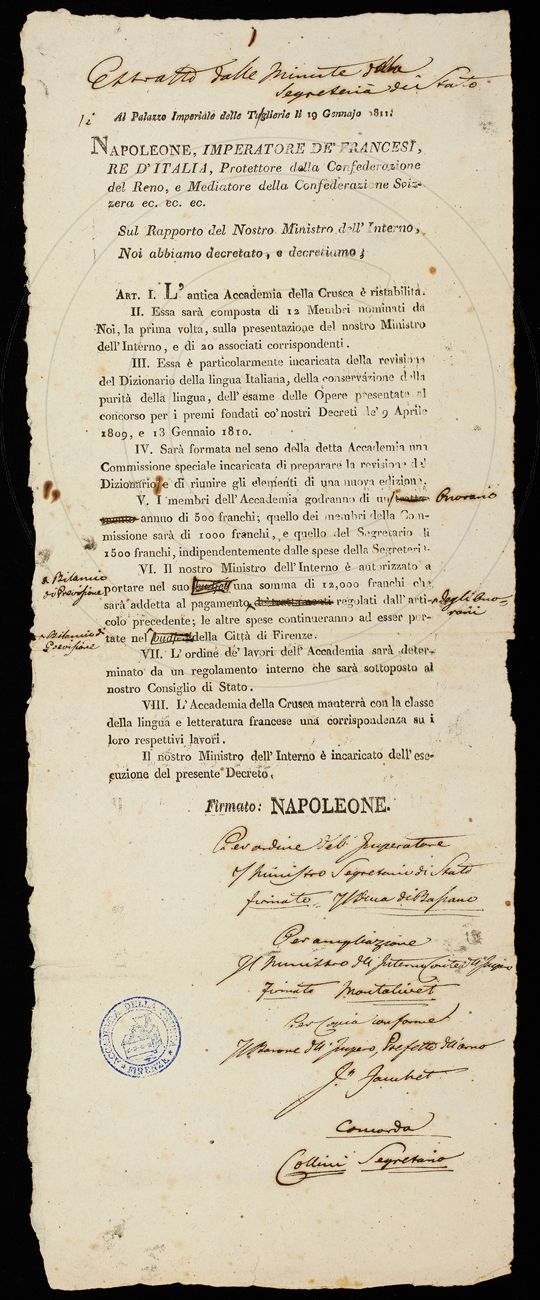 Estratto dalle Minute della
Segreteria di Stato
Al Palazzo Imperiale delle Tuglierie li 19 Gennajo 1811.
NAPOLEONE, IMPERATORE DE' FRANCESI,
RE D'ITALIA, Protettore della Confederazione
del Reno, e Mediatore della Confederazione Sviz-
zera ec. ec. ec.
Sul Rapporto del Nostro Ministro dell'Interno,
Noi abbiamo decretato, e decretiamo;
ART. I. L'antica Accademia della Crusca è ristabilita.
II. Essa sarà composta di 12 Membri nominati da
Noi, la prima volta, sulla presentazione del nostro Ministro
dell'Interno, e di 20 associati corrispondenti.
III. Essa è particolarmente incaricata della revisione
del Dizionario della lingua Italiana, della conservazione della
purità della lingua, dell'esame delle Opere presentate al
concorso per i premi fondati co'nostri Decreti de' 9 Aprile
1809, e 13 Gennaio 1810.
IV. Sarà formata nel seno della detta Accademia una
Commissione speciale incaricata di preparare la revisione del
Dizionario, e di riunire gli elementi di una nuova edizione.
V. I membri dell'Accademia godranno di un tratta- Onorario
mento annuo di 500 franchi; quello dei membri della Com-
missione sarà di 1000 franchi, e quello del Segretario di
1500 franchi, indipendentemente dalle spese della Segreteria.
VI. Il nostro Ministro dell'Interno è autorizzato a
a Bilancio
di Previsione
portare nel suo budjet una somma di 12,000 franchi che
sarà addetta al pagamento de' trattamenti regolati dall'arti-
degli Ono-
rarii
colo precedente; le altre spese continueranno ad esser por-
a Bilancio di
Previsione
tate nel budjet della Città di Firenze.
VII. L'ordine de' lavori dell'Accademia sarà deter-
minato da un regolamento interno che sarà sottoposto al
nostro Consiglio di Stato.
VIII. L'Accademia della Crusca manterrà con la classe
della lingua e letteratura francese una corrispondenza su i
loro respettivi lavori.
Il nostro Ministro dell'Interno è incaricato dell'ese-
cuzione del presente Decreto.
Firmato: NAPOLEONE.
Per ordine dell'Imperatore
Il Ministro Segretario di Stato
firmato Il Duca di Bassano
Per ampliazione
Il Ministro dell'Interno Conte dell'Impero
firmato Montalivet
Per Copia conforme
Il Barone dell'Impero, Prefetto dell'Arno
Concorda
Collini Segretario
ACCADEMIA DELLA CRUSCA
FIRENZE